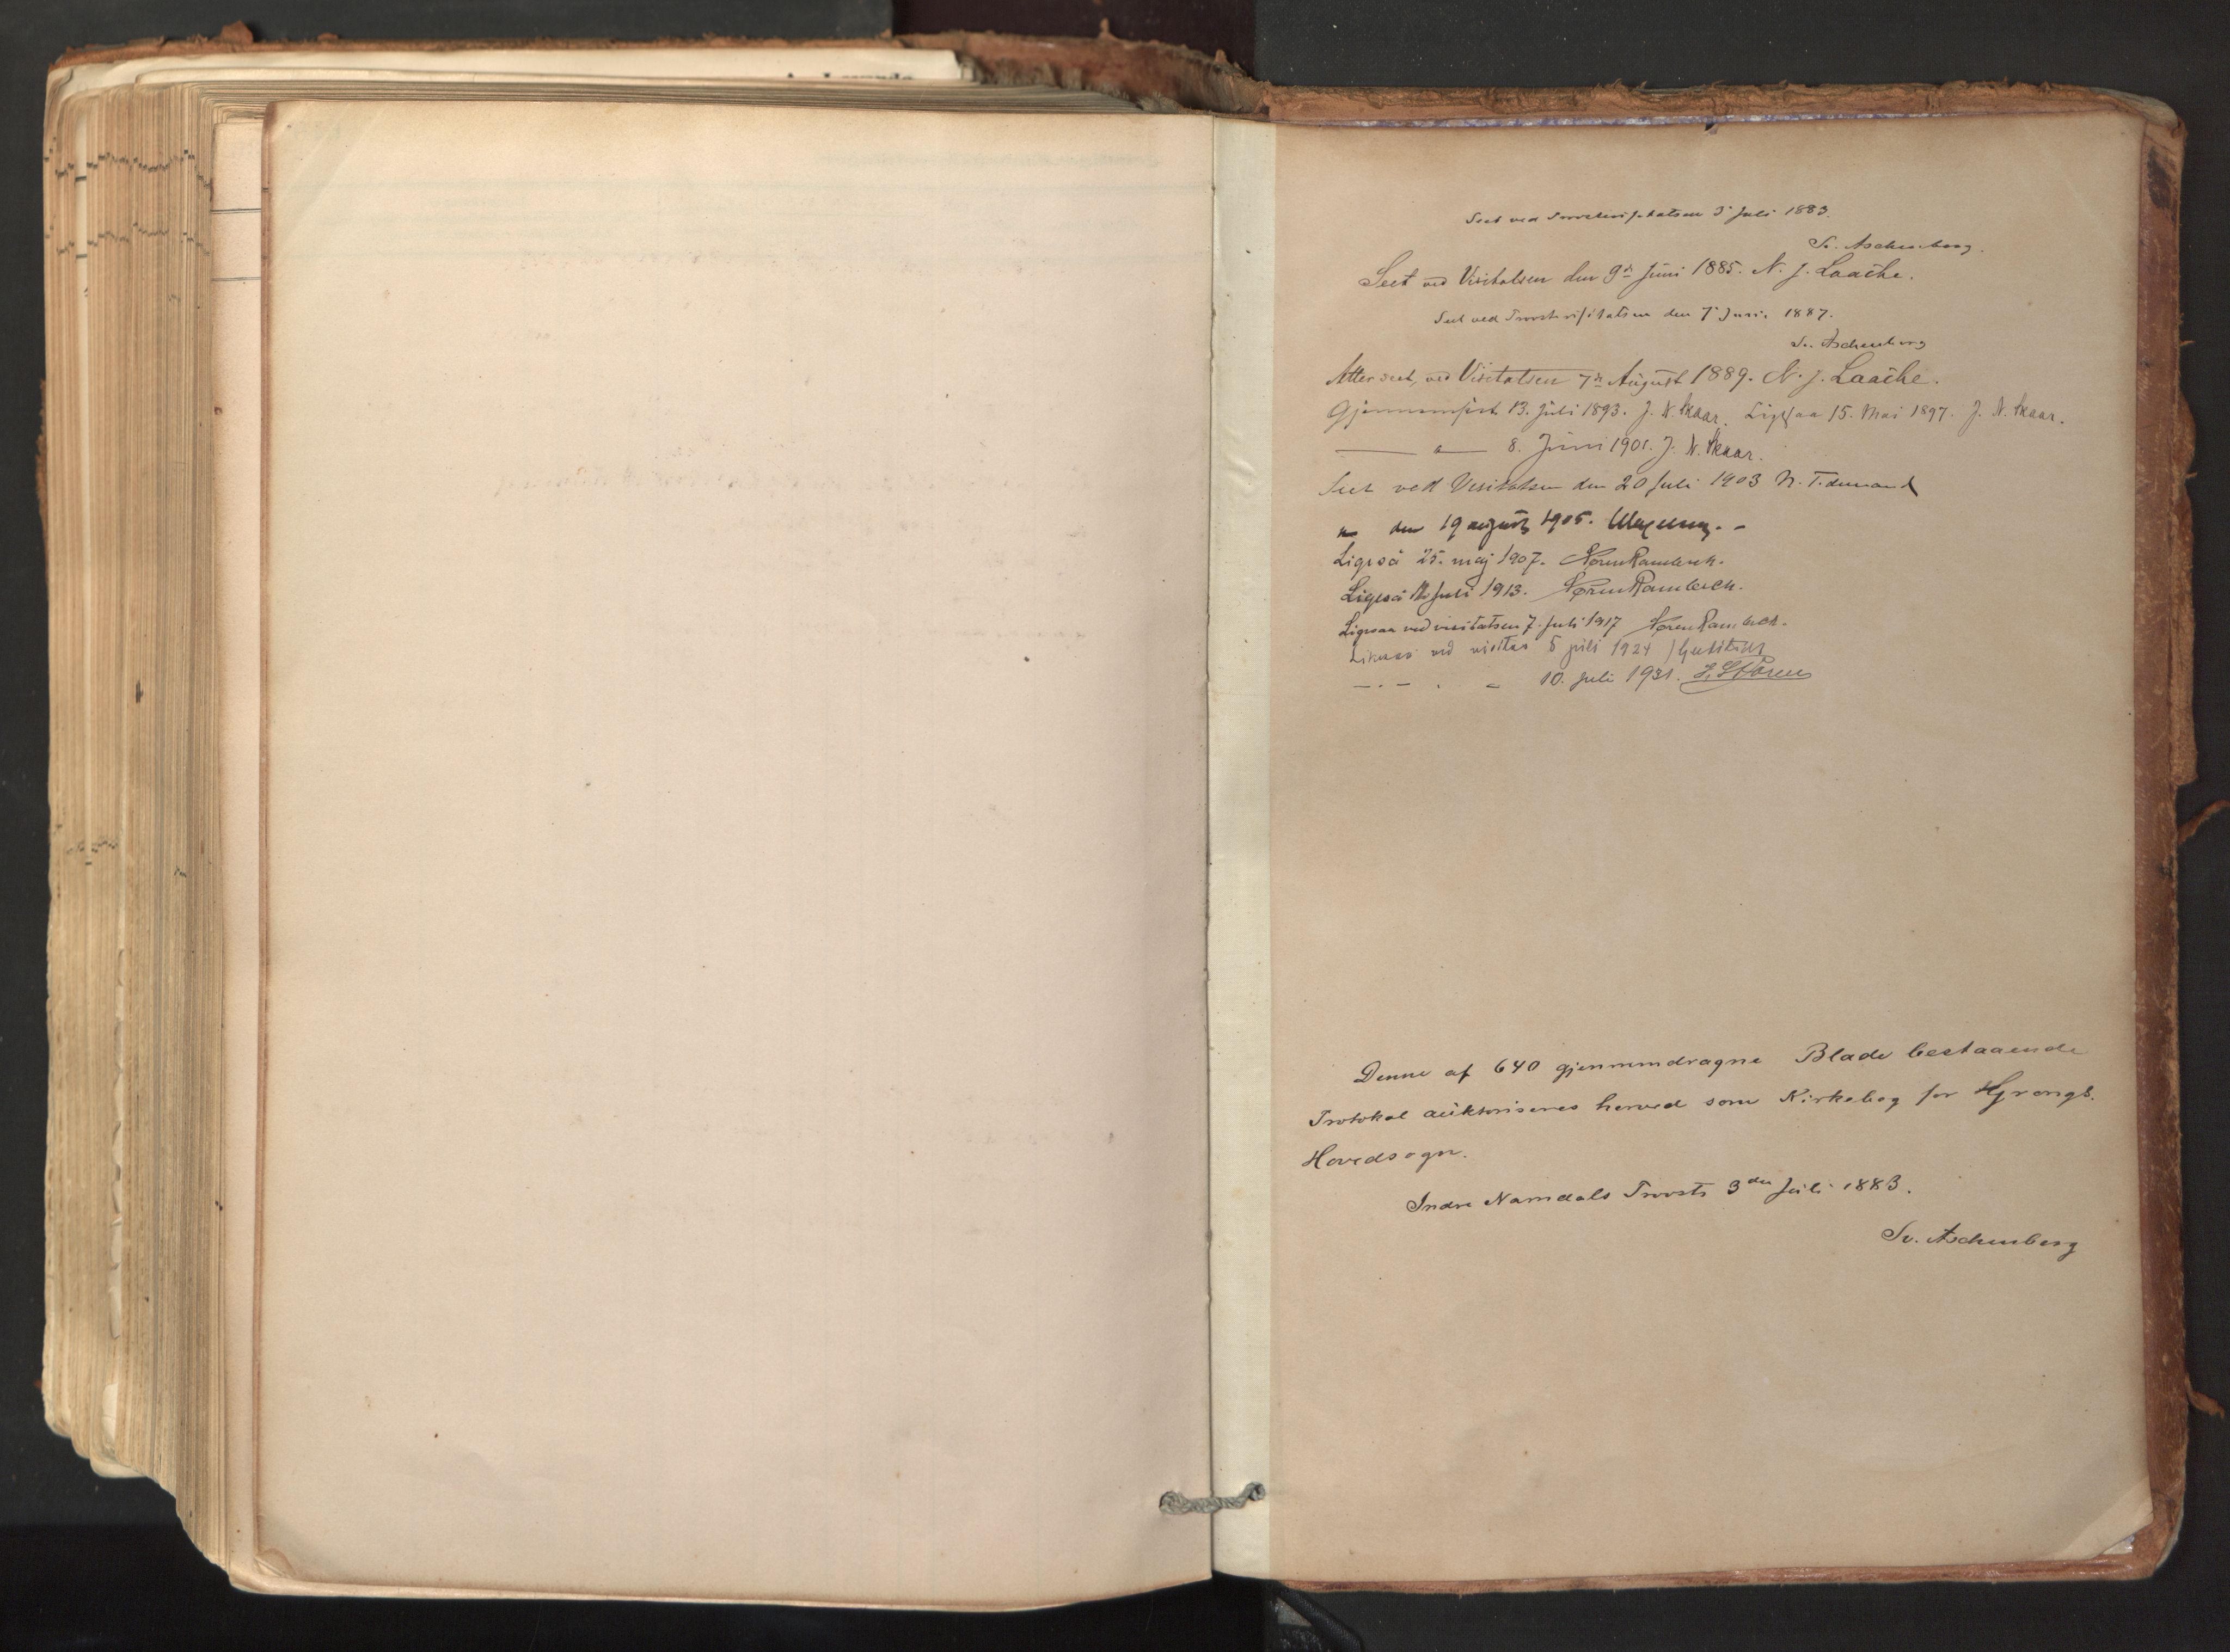 Seet ved Provstevisitatsen 3 Juli 1883.
Sv. Aschenberg.
Seet ved Visitatsen den 9de Juni 1885. N. J. Laache.
Seet ved Provstevisitatsen den 7 Juni 1887.
Sv. Aschenberg
Atter seet, ved Visitatsen 7de August 1889. N. J. Laache.
Gjennemseet 13. Juli 1893. J. N. Skaar. Ligesaa 15. Mai 1897. J. N. Skaar.
— " — 8. Juni 1901. J. N. Skaar.
Seet ved Visitatsen den 20 Juli 1903 N. Tidemand
den 19 august 1905.
Ligeså 25. maj 1907.
Ligeså Juli 1913.
Ligesaa ved visitatsen 7. Juli 1917
Likesaa ved visitas 5 juli 1924
10. juli 1931.
Denne af 640 gjennemdragne Blade bestaaende
Protokol auktoriseres herved som Kirkebog for Grongs
Hovedsogn.
Indre Namdals Provsti 3den Juli 1883.
Sv. Aschenberg